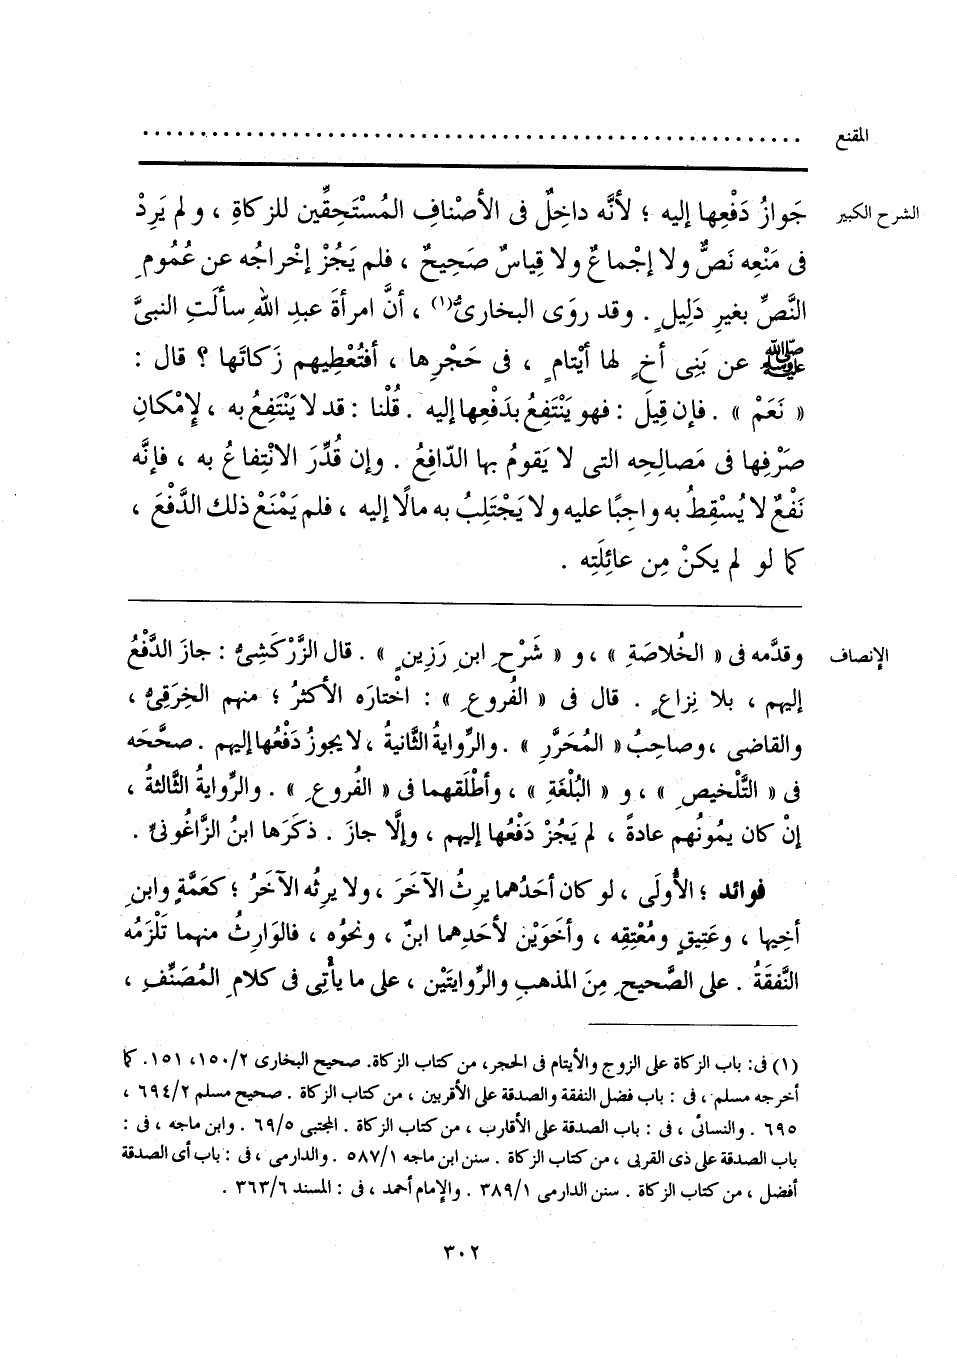 المقنع ..........................................................
الشرح الكبير جَوازُ دَفْعِها إليه ؛ لأنَّه داخِلٌ فى الأصْنافِ المُسْتَحِقِّين للزكاةِ ، و لم يَرِدْ
فى مَنْعِه نَصٌّ ولا إجْماعٌ ولا قِياسٌ صَحِيحٌ ، فلم يَجُزْ إخْراجُه عن عُمُومِ
النَّصِّ بغيرِ دَلِيلٍ . وقد روَى البخارىُّ(١) ، أنَّ امرأةَ عبدِ اللهِ سألَتِ النبىَّ
ﷺ عن بَنِى أخٍ لها أيْتامٍ ، فى حَجْرِها ، أفتُعْطِيهم زَكاتَها ؟ قال :
« نَعَمْ » . فإن قِيلَ : فهو يَنْتَفِعُ بدَفْعِها إليه . قُلْنا : قد لا يَنْتَفِعُ به ، لإمْكانِ
صَرْفِها فى مَصالِحِه التى لا يَقومُ بها الدّافِعُ . وإن قُدِّرَ الانْتِفاعُ به ، فإنَّه
نَفْعٌ لا يُسْقِطُ به واجِبًا عليه ولا يَجْتَلِبُ به مالًا إليه ، فلم يَمْنَعْ ذلك الدَّفْعَ ،
كما لو لم يكنْ مِن عائِلَتِه .
الإنصاف وقدَّمه فى « الخُلاصَةِ » ، و « شَرْحِ ابنِ رَزِينٍ » . قال الزَّرْكَشِىُّ : جازَ الدَّفْعُ
إليهم ، بلا نِزاعٍ . قال فى « الفُروعِ » : اخْتارَه الأكثرُ ؛ منهم الخِرَقِىُّ ،
والقاضى ، وصاحِبُ « المُحَرَّرِ » . والرِّوايةُ الثَّانيةُ ، لا يجوزُ دَفْعُها إليهم . صحَّحَه
فى « التَّلْخيصِ » ، و « البُلْغَةِ » ، وأطْلَقَهما فى « الفُروعِ » . والرِّوايةُ الثَّالثةُ ،
إنْ كان يمُونُهم عادةً ، لم يَجُزْ دَفْعُها إليهم ، وإلَّا جازَ . ذكَرَها ابنُ الزَّاغُونىِّ .
فوائد ؛ الأُولَى ، لو كان أحَدُهما يرِثُ الآخَرَ ، ولا يرِثُه الآخَرُ ؛ كعَمَّةٍ وابنِ
أخِيها ، وعَتِيقٍ ومُعْتِقِه ، وأخَوَيْن لأحَدِهما ابنٌ ، ونحوُه ، فالوَارِثُ منهما تَلْزَمُه
النَّفَقَةُ . على الصَّحيحِ مِنَ المذهبِ والرِّوايتَيْن ، على ما يأْتِى فى كلامِ المُصَنِّفِ ،
(١) فى: باب الزكاة على الزوج والأيتام فى الحجر، من كتاب الزكاة. صحيح البخارى ١٥٠/٢، ١٥١. كما
أخرجه مسلم ، فى : باب فضل النفقة والصدقة على الأقربين ، من كتاب الزكاة . صحيح مسلم ٦٩٤/٢ ،
٦٩٥ . والنسائى ، فى : باب الصدقة على الأقارب ، من كتاب الزكاة . المجتبى ٦٩/٥ . وابن ماجه ، فى :
باب الصدقة على ذى القربى ، من كتاب الزكاة . سنن ابن ماجه ٥٨٧/١ . والدارمى ، فى : باب أى الصدقة
أفضل ، من كتاب الزكاة . سنن الدارمى ٣٨٩/١ . والإمام أحمد ، فى : المسند ٣٦٣/٦ .
٣٠٢